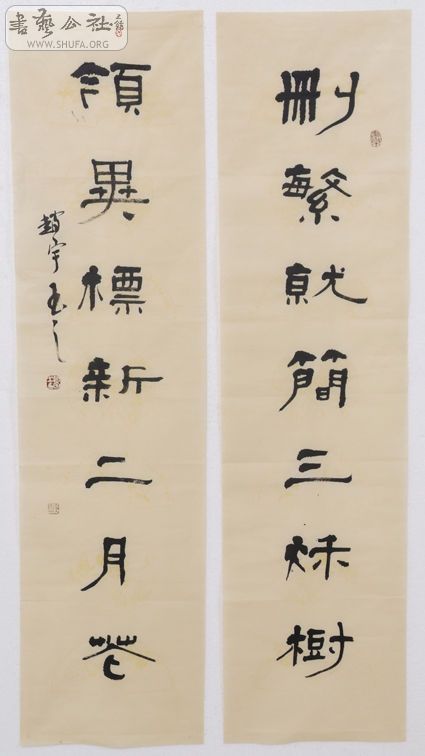 書藝公社
WWW.SHUFA.ORG
刪繁就簡三秌樹
領異標新二月花